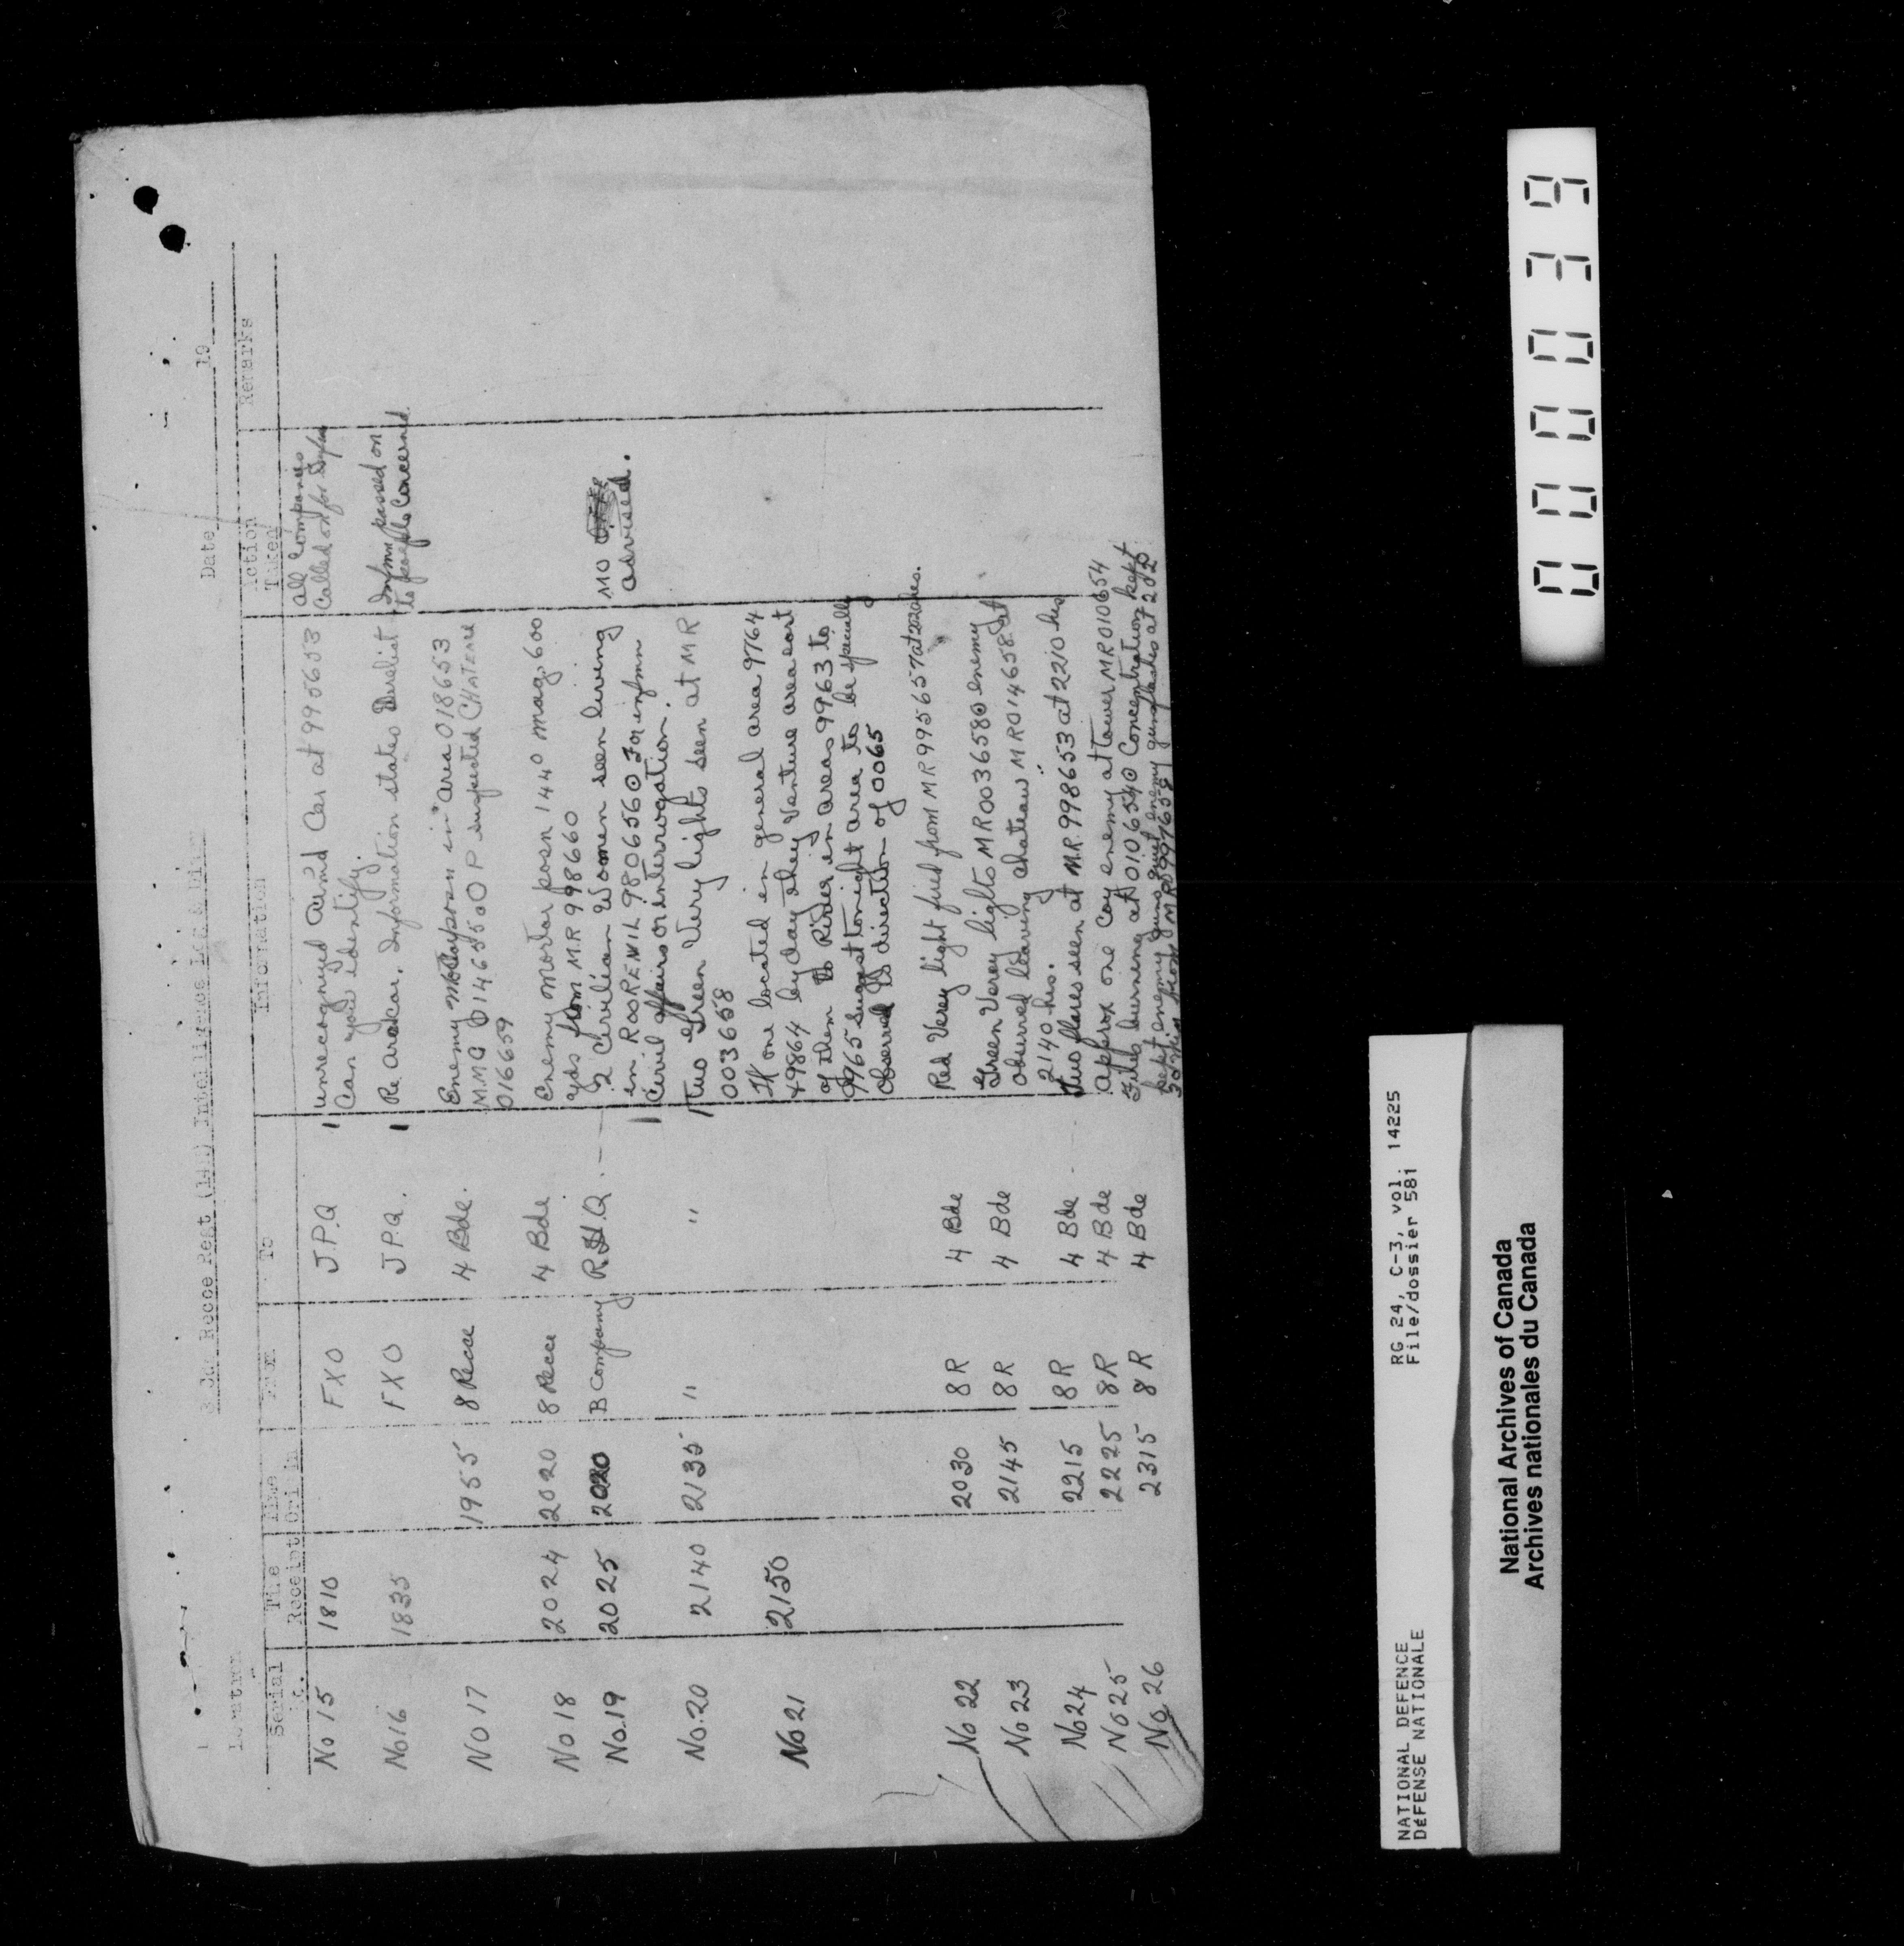 8 Cdn Recce Regt (14H) Intelligence Log & Diary
Date 19
Serial No. Time Receipt Time Origin From To Information Action Taken Remarks
No 15 1810 FXO J.P.Q Unrecognized Arm'd Car at 995653 All Companies
Can you identify. Called on for Infm
No 16 1835 FXO J.P.Q. Re. Information states Infmn passed on
to people Concerned.
No 17 1955 8 Recce 4 Bde. Enemy in area 018653
M.M.G O.P suspected
016659
No 18 2024 2020 8 Recce 4 Bde. Enemy Mortar posn 1440 mag. 600
yds from M.R 998660
No.19 2025 2020 B Company R.H.Q. 2 Civilian Women seen living MO
in 9806560 For infmn advised.
Civil affairs or interrogation.
No.20 2140 2135 " " Two Green Very lights seen at M R
003658
No 21 2150 one located in general area 9764
+9864 by day they Venture area east
of them to River in areas 9963 to
9965 Suggest tonight area to be specially
observed is direction of 0065
No 22 2030 8R 4 Bde Red Verey light fired from MR 995657 at 2020 hrs.
No 23 2145 8R 4 Bde Green Verey lights MR 0036580 enemy
observed leaving chateau MR 014658 at
2140 hrs.
No 24 2215 8R 4 Bde Two flares seen at M.R. 998653 at 2210 hrs
No 25 2225 8R 4 Bde Approx one Coy enemy at tower MR 010654
No. 26 2315 8R 4 Bde burning at 0106540 Concentration kept
kept enemy guns quiet enemy gunflashes at
30 Min from MR
0000039
NATIONAL DEFENCE RG 24, C-3, vol. 14225
DÉFENSE NATIONALE File/dossier 581
National Archives of Canada
Archives nationales du Canada